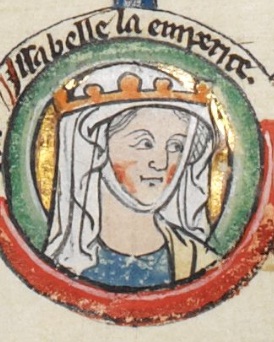 Isabelle la emperice.